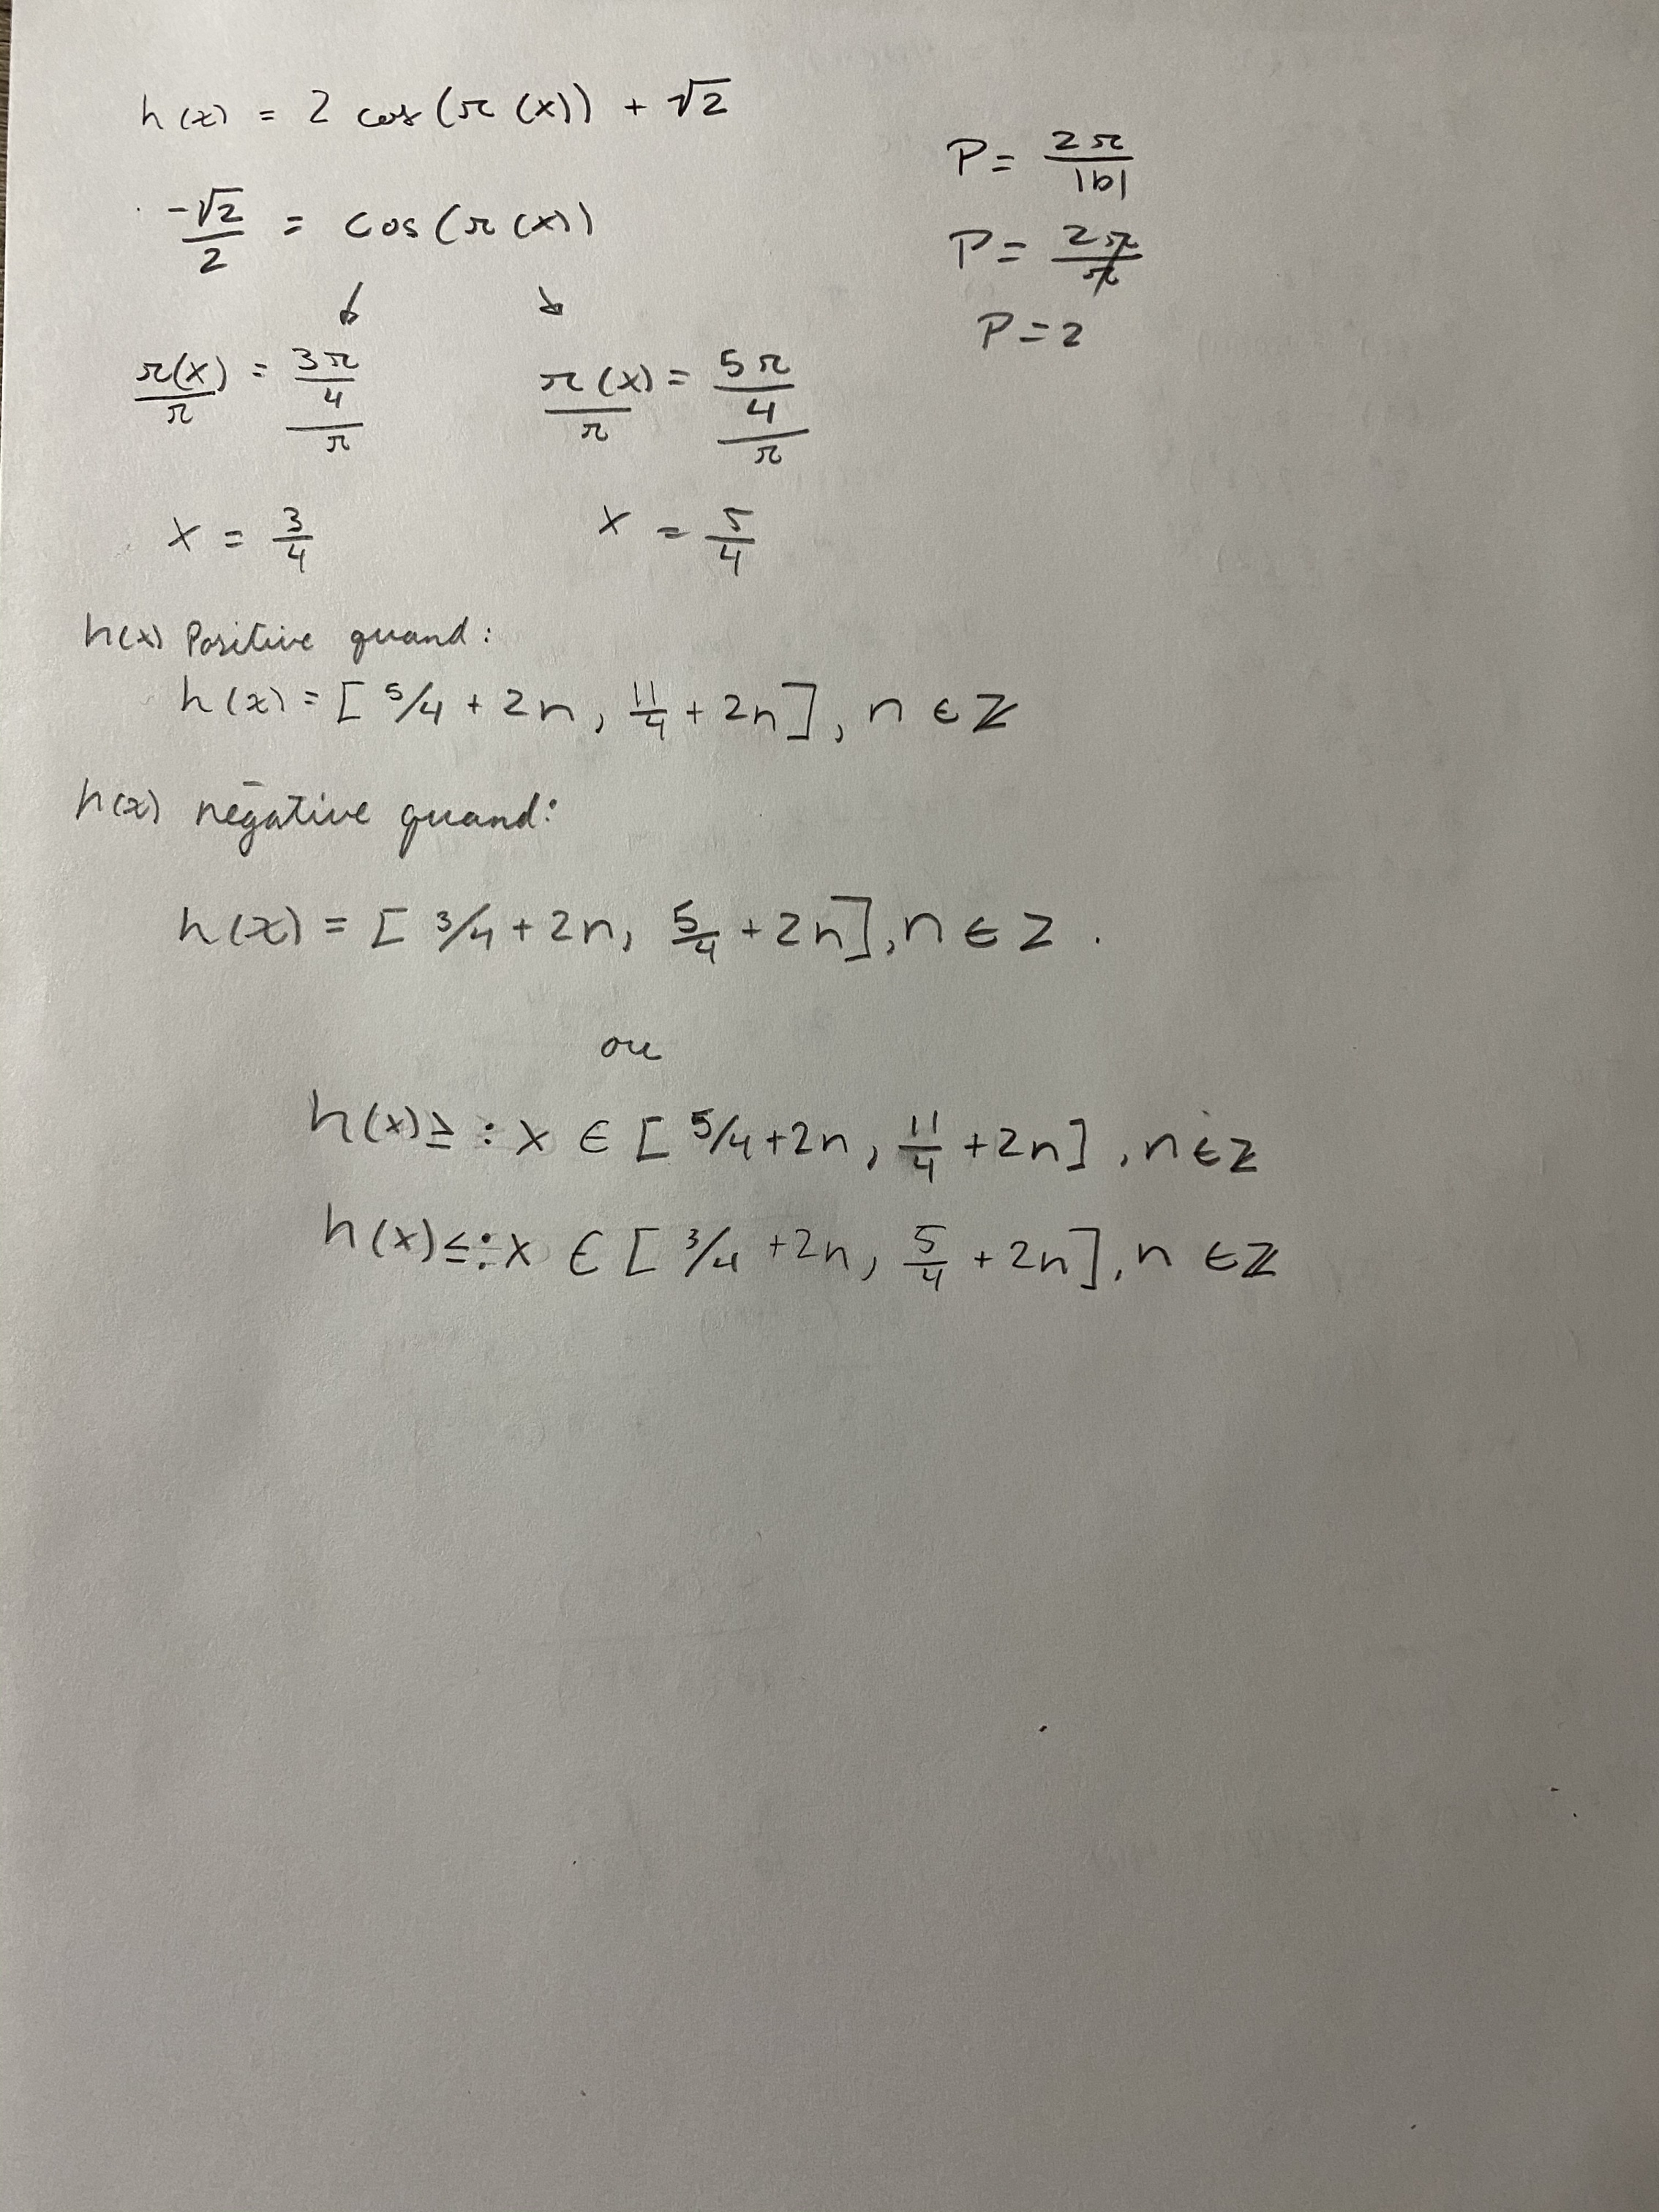 h(x) = 2 cos(π(x)) + √2
-√2/2 = cos(π(x))
π(x)/π = 3π/4/π    π(x)/π = 5π/4/π
x = 3/4    x = 5/4
P = 2π/|b|
P = 2π/π
P = 2
h(x) Positive quand :
h(x) = [5/4 + 2n, 11/4 + 2n], n ∈ ℤ
h(x) négative quand :
h(x) = [3/4 + 2n, 5/4 + 2n], n ∈ Z .
ou
h(x) ≥ : x ∈ [5/4 + 2n, 11/4 + 2n], n ∈ ℤ
h(x) ≤ : x ∈ [3/4 + 2n, 5/4 + 2n], n ∈ ℤ